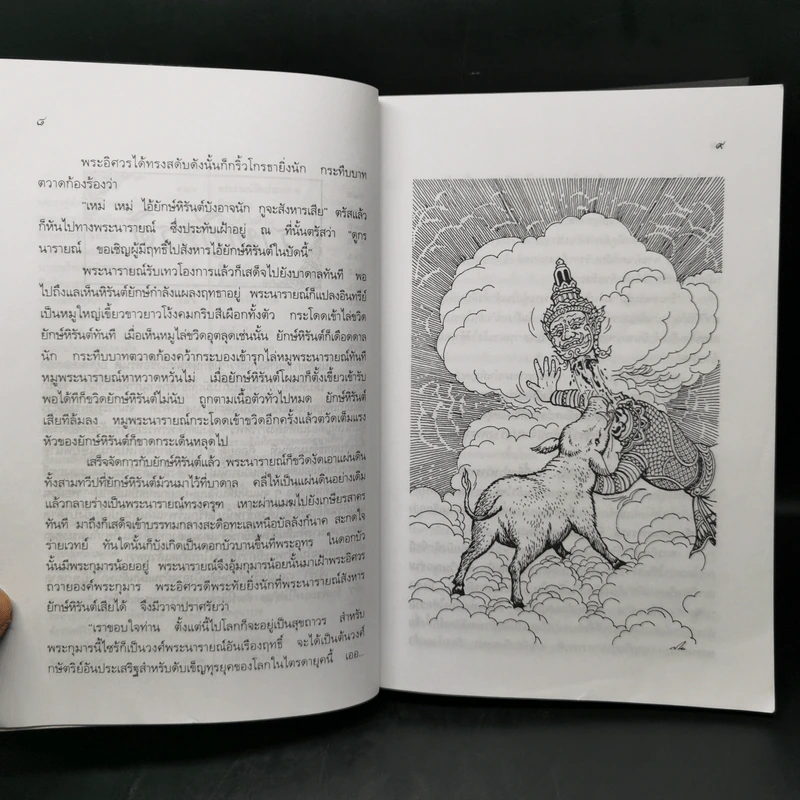 ๘
พระอิศวรได้ทรงสดับดังนั้นก็กริ้วโกรธายิ่งนัก กระทืบบาท
ตวาดก้องร้องว่า
"เหม่ เหม่ ไอ้ยักษ์หิรันต์บังอาจนัก กูจะสังหารเสีย" ตรัสแล้ว
ก็หันไปทางพระนารายณ์ ซึ่งประทับเฝ้าอยู่ ณ ที่นั้นตรัสว่า "ดูกร
นารายณ์ ขอเชิญผู้มีฤทธิ์ไปสังหารไอ้ยักษ์หิรันต์ในบัดนี้"
พระนารายณ์รับเทวโองการแล้วก็เสด็จไปยังบาดาลทันที พอ
ไปถึงแลเห็นหิรันต์ยักษ์กำลังแผลงฤทธาอยู่ พระนารายณ์ก็แปลงอินทรีย์
เป็นหมูใหญ่เขี้ยวขาวยาวโง้งคมกริบสีเผือกทั้งตัว กระโดดเข้าไล่ขวิด
ยักษ์หิรันต์ทันที เมื่อเห็นหมูไล่ขวิดอุตลุดเช่นนั้น ยักษ์หิรันต์ก็เดือดดาล
นัก กระทืบบาทตวาดก้องคว้ากระบองเข้ารุกไล่หมูพระนารายณ์ทันที
หมูพระนารายณ์หาหวาดหวั่นไม่ เมื่อยักษ์หิรันต์โผมาก็ตั้งเขี้ยวเข้ารับ
พอได้ทีก็ขวิดยักษ์หิรันต์ไม่นับ ถูกตามเนื้อตัวทั่วไปหมด ยักษ์หิรันต์
เสียทีล้มลง หมูพระนารายณ์กระโดดเข้าขวิดอีกครั้งแล้วตวัดเต็มแรง
หัวของยักษ์หิรันต์ก็ขาดกระเด็นหลุดไป
เสร็จจัดการกับยักษ์หิรันต์แล้ว พระนารายณ์ก็ขวิดงัดเอาแผ่นดิน
ทั้งสามทวีปที่ยักษ์หิรันต์ม้วนมาไว้ที่บาดาล คลี่ให้เป็นแผ่นดินอย่างเดิม
แล้วกลายร่างเป็นพระนารายณ์ทรงครุฑ เหาะผ่านเมฆไปยังเกษียรสาคร
ทันที มาถึงก็เสด็จเข้าบรรทมกลางสะดือทะเลเหนือบัลลังก์นาค สะกดใจ
ร่ายเวทย์ ทันใดนั้นก็บังเกิดเป็นดอกบัวบานขึ้นที่พระอุทร ในดอกบัว
นั้นมีพระกุมารน้อยอยู่ พระนารายณ์จึงอุ้มกุมารน้อยนั้นมาเฝ้าพระอิศวร
ถวายองค์พระกุมาร พระอิศวรดีพระทัยยิ่งนักที่พระนารายณ์สังหาร
ยักษ์หิรันต์เสียได้ จึงมีวาจาปราศรัยว่า
"เราขอบใจท่าน ตั้งแต่นี้ไปโลกก็จะอยู่เป็นสุขถาวร สำหรับ
พระกุมารนี้ไซร้ก็เป็นวงศ์พระนารายณ์อันเรืองฤทธิ์ จะได้เป็นต้นวงศ์
กษัตริย์อันประเสริฐสำหรับดับเข็ญทุรยุคของโลกในไตรดายุคนี้ เออ...
๙